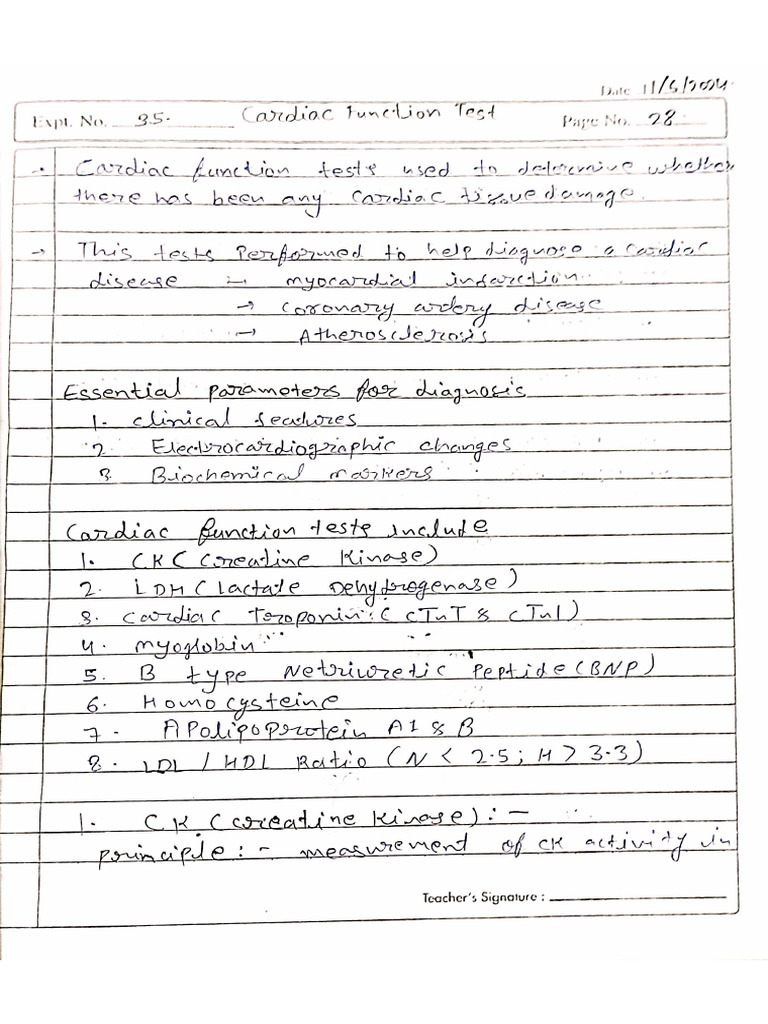 Date 11/6/2024
Expt. No. 35. Cardiac Function Test Page No. 28
→ Cardiac function tests used to determine whether
there has been any cardiac tissue damage.
→ This tests performed to help diagnose a cardiac
disease → myocardial infarction
→ coronary artery disease
→ Atherosclerosis
Essential parameters for diagnosis
1. clinical features
2. Electrocardiographic changes
3. Biochemical markers
Cardiac function tests include
1. CK (creatine kinase)
2. LDH (lactate Dehydrogenase)
3. cardiac Toroponin (cTnT & cTnI)
4. myoglobin
5. B type Netriuretic Peptide (BNP)
6. Homocysteine
7. Apolipoprotein A1 & B
8. LDL / HDL Ratio (N < 2.5; H > 3.3)
1. CK (creatine kinase) : -
principle : - measurement of CK activity in
Teacher's Signature :